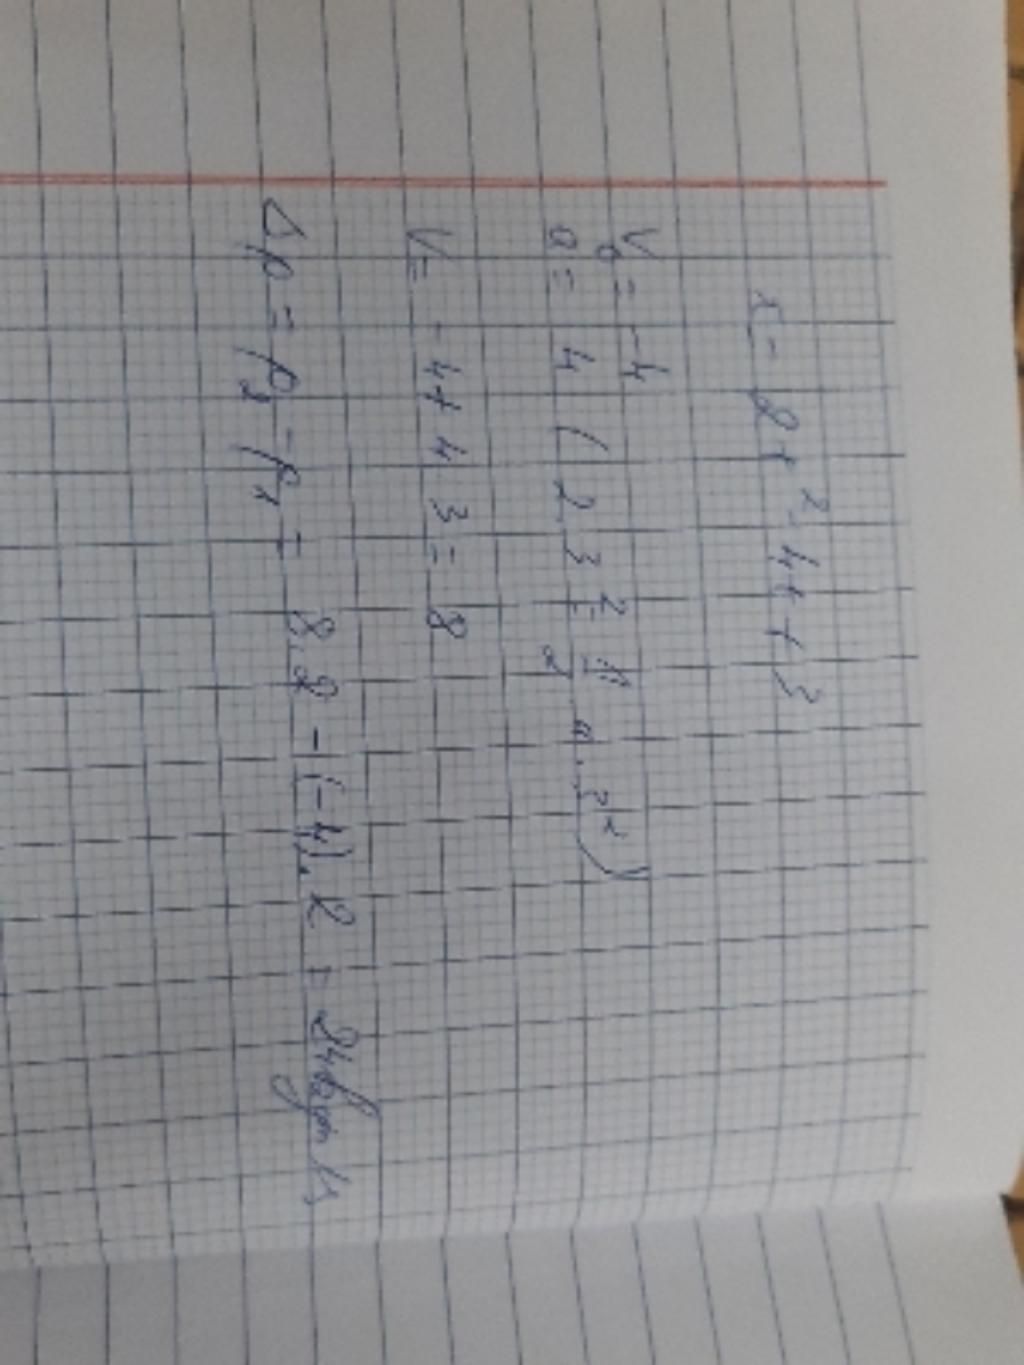 x - 2t² - 4t + 3
V₀ = -4
a = 4 ( 2 3² = 11/2 a . t²)
V = -4 + 4 . 3 = 8
Δp = p₂ - p₁ = 8 . 2 - (-4) . 2 =